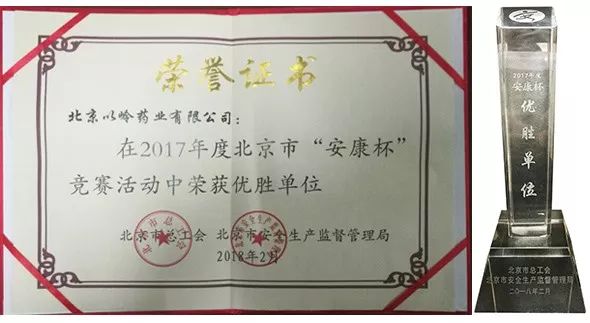 荣誉证书
北京以岭药业有限公司：
在2017年度北京市“安康杯”
竞赛活动中荣获优胜单位
北京市总工会 北京市安全生产监督管理局
2018年2月
2017年度
安康杯
优胜单位
北京市总工会
北京市安全生产监督管理局
二〇一八年二月